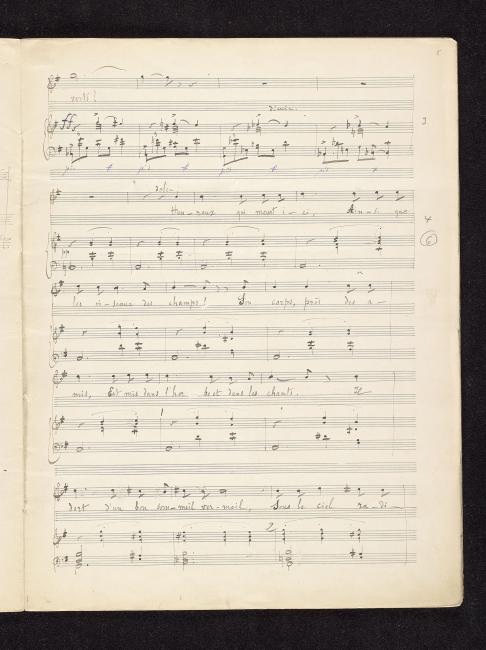 5
verts!
dimin.
ff
3
ped * ped * ped * ped *
dolce
Heu-reux qui meurt i-ci, Ain-si que
4
6
les oi-seaux des champs! Son corps, près des a-
mis, Est mis dans l'her be et dans les chants. Il
dort d'un bon som-meil ver-meil, Sous le ciel ra-di-
2